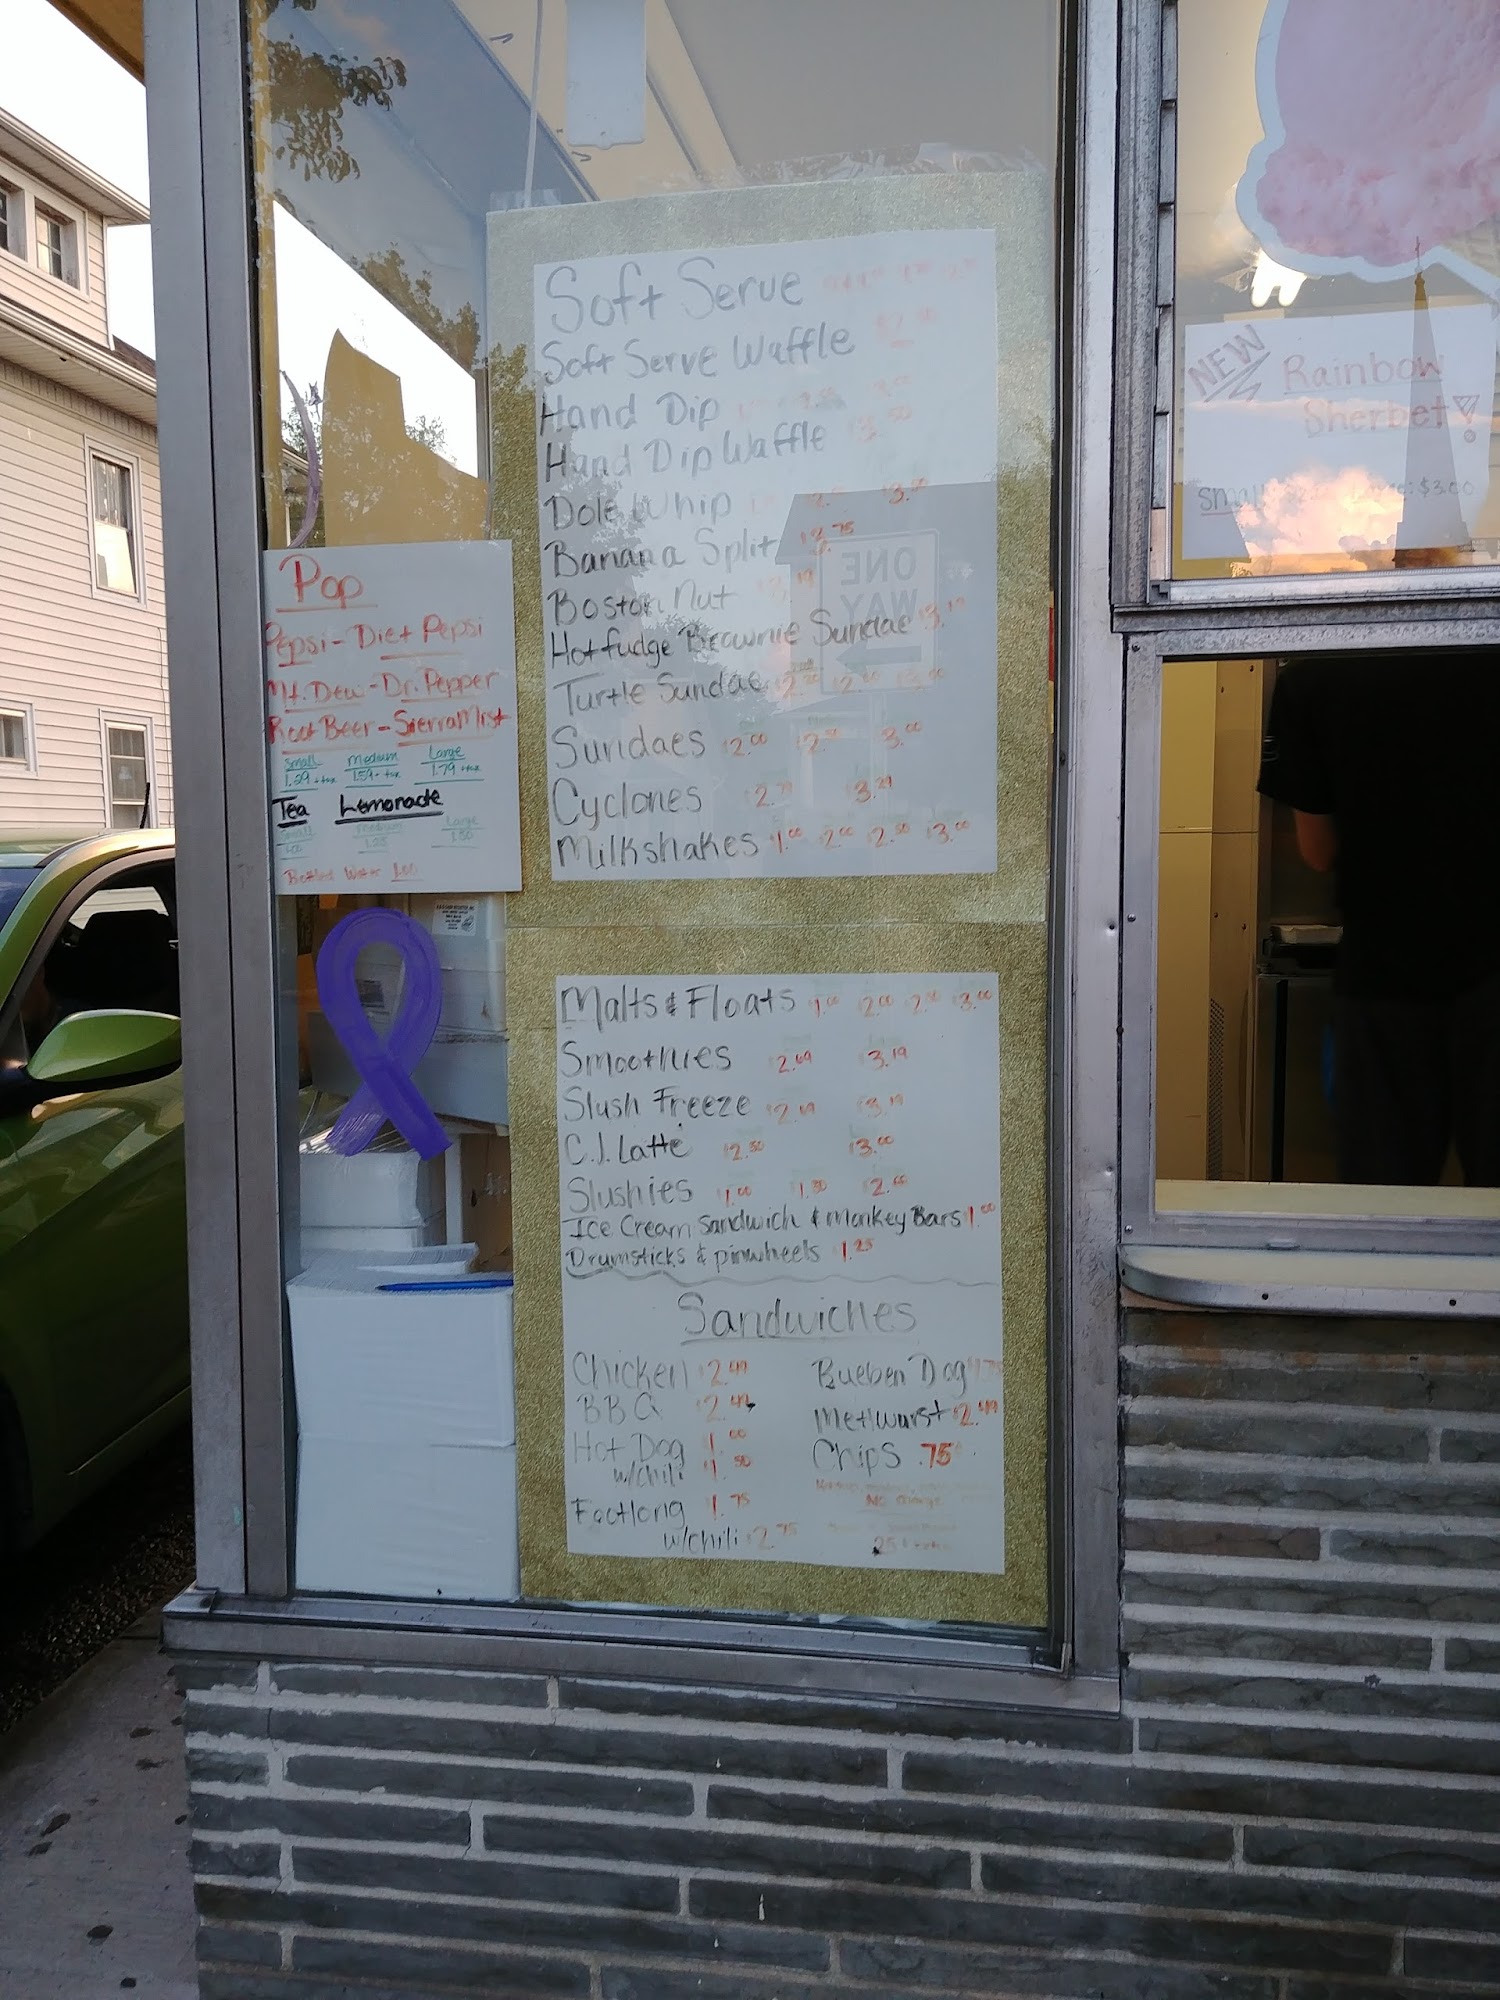 Soft Serve
Soft Serve Waffle
Hand Dip
Hand Dip Waffle
Dole Whip $3.50
Banana Split $3.75
Boston Nut
Hot fudge Brownie Sundae $3.19
Turtle Sundae
Sundaes $2.00 3.00
Cyclones $3.29
Milkshakes $1.00 $2.00 $2.50 $3.00
Pop
Pepsi - Diet Pepsi
Mt. Dew - Dr. Pepper
Root Beer - Sierra Mist
Small Medium Large
1.29 + tax 1.59 + tax 1.79 + tax
Tea Lemonade
Small Medium Large
1.00 1.25 1.50
Bottled Water 1.00
Malts & Floats $1.00 $2.00 $2.50 $3.00
Smoothies $2.69 $3.19
Slush Freeze $2.19 $3.19
C.J. Latte $2.50 $3.00
Slushies $1.00 1.50
Ice Cream Sandwich & Monkey Bars $1.00
Drumsticks & pinwheels $1.25
Sandwiches
Chicken $2.49 Bueben Dog
BBQ $2.49 Metwurst $2.49
Hot Dog $1.00 Chips .75
w/chili $1.50
Footlong $1.75 No charge
w/chili $2.75
NEW Rainbow
Sherbet!
Small $3.00
ONE
WAY